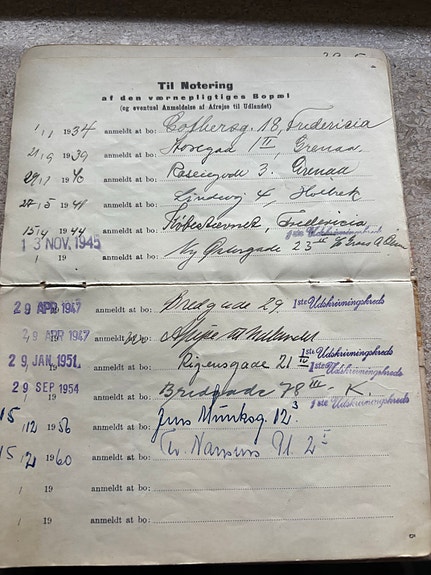 Til Notering
af den værnepligtiges Bopæl
(og eventuel Anmeldelse af Afrejse til Udlandet)
1/11 1934 anmeldt at bo: 18, Fredericia
1939 anmeldt at bo: 1 II, Grenaa
29/11 1940 anmeldt at bo: 3. Grenaa
1941 anmeldt at bo: Lindevej 4, Holbæk
15/4 1944 anmeldt at bo: Fredericia
13 NOV. 1945
1ste Udskrivningskreds
1 19 anmeldt at bo: Ny Østergade 23
29 APR 1947 anmeldt at bo: Bredgade 29 1ste Udskrivningskreds
29 APR 1947 anmeldt at bo: Afrejse til Udlandet
29. JAN. 1951. anmeldt at bo: Rigensgade 21 IV 1ste Udskrivningskreds
29 SEP 1954 anmeldt at bo: Bredgade 78 III K. 1ste Udskrivningskreds
15/12 1956 anmeldt at bo: Jens Munksg. 12 3
15/12 1960 anmeldt at bo: Tv. 2 I
1 19 anmeldt at bo:
1 19 anmeldt at bo:
5